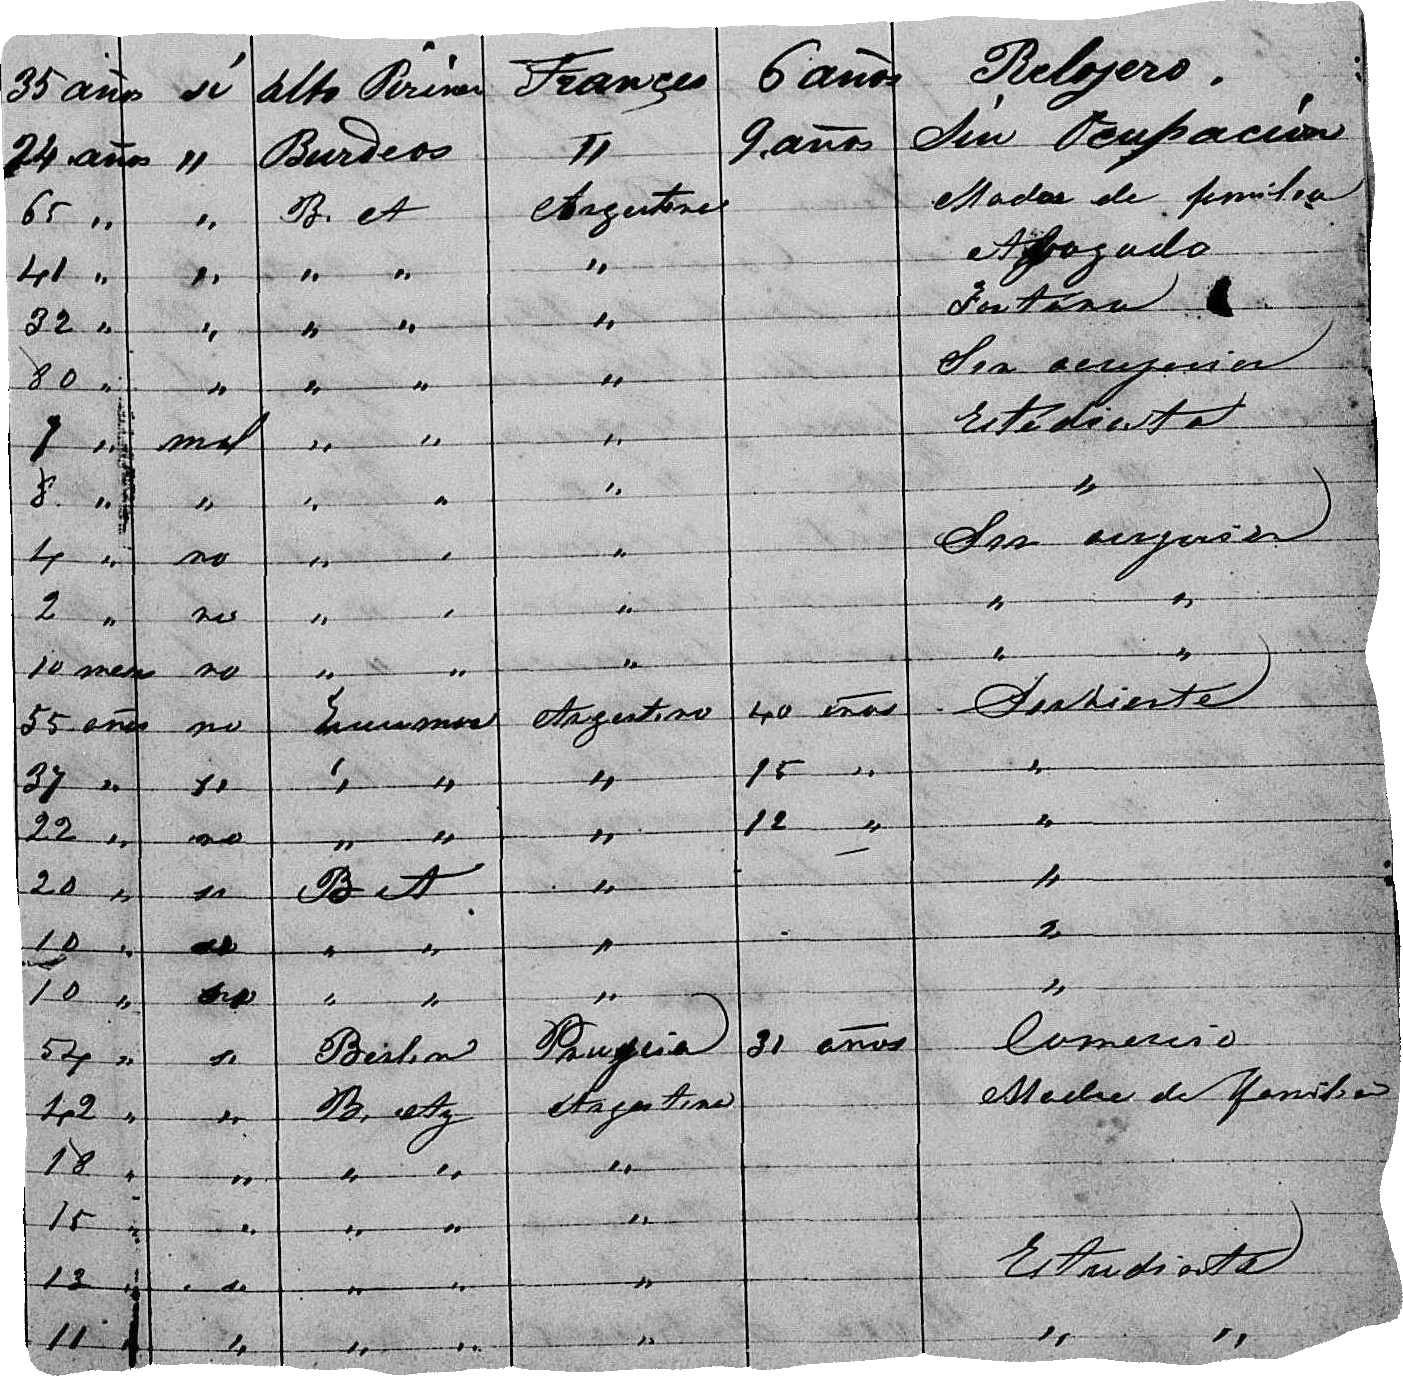 35 años sí Alto Pirineo Frances 6 años Relojero.
24 años " Burdeos " 9 años Sin Ocupación
65 " " B. A Argentina Madre de familia
41 " " " " " Abogado
32 " " " " "
80 " " " " " Sin ocupacion
7 " mal " " " Estudiante
8 " " " " " "
4 " no " " " Sin ocupacion
2 " no " " " " "
10 mes no " " " " "
55 años no Tucuman Argentino 40 años Sirviente
37 " si " " " 15 " "
22 " no " " " 12 " "
20 " si B A " "
10 " " " " "
10 " no " " " "
54 " si Berlin Prusia 31 años Comercio
42 " " B. Ay Argentina Madre de familia
18 " " " " "
15 " " " " "
13 " " " " " Estudiante
11 " " " " " " "